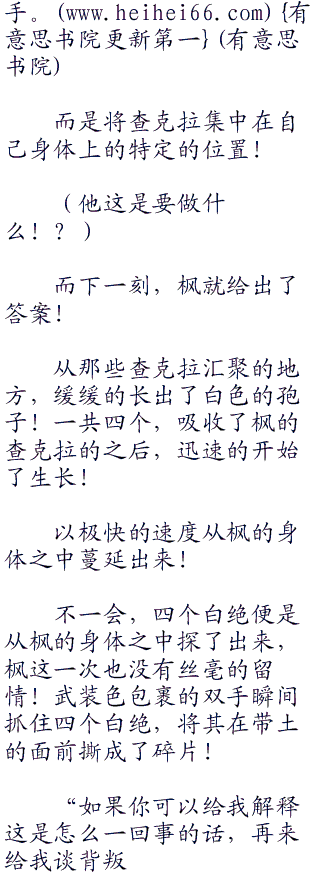 手。(www.heihei66.com){有
意思书院更新第一}(有意思
书院)
而是将查克拉集中在自
己身体上的特定的位置！
（他这是要做什
么！？）
而下一刻，枫就给出了
答案！
从那些查克拉汇聚的地
方，缓缓的长出了白色的孢
子！一共四个，吸收了枫的
查克拉的之后，迅速的开始
了生长！
以极快的速度从枫的身
体之中蔓延出来！
不一会，四个白绝便是
从枫的身体之中探了出来，
枫这一次也没有丝毫的留
情！武装色包裹的双手瞬间
抓住四个白绝，将其在带土
的面前撕成了碎片！
“如果你可以给我解释
这是怎么一回事的话，再来
给我谈背叛